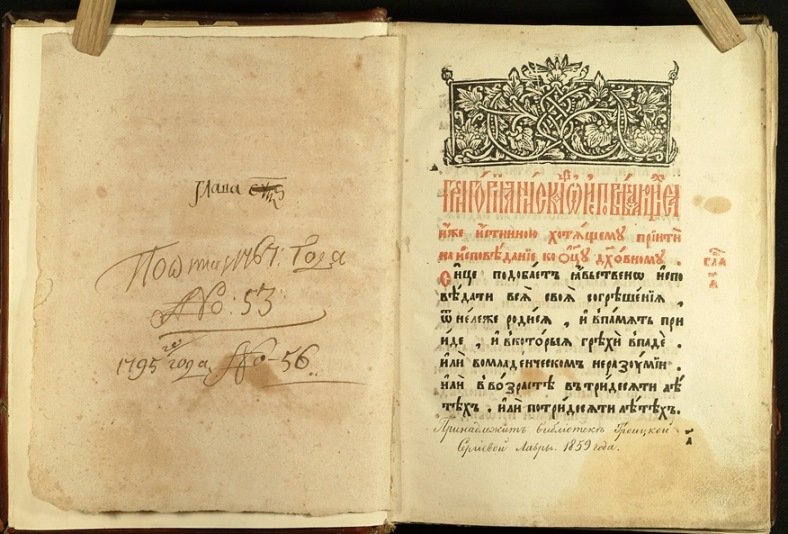 Глава
По описи 1767: Года
№: 53
1795 го года № 56
и҆́же и҆́стинною хотѧ́щему прїити
на и҆сповѣ́данїе ко ѻ҆цꙋ̀ дх҃о́вному .
Си́це подоба́етъ ꙗ҆́вьственѡ и҆спо
вѣ́дати всѧ̀ своѧ̀ согрѣше́нїѧ ,
ѿ не́лѣже роди́сѧ , и҆ в̾па́мѧть прі
и́де , и҆ в̾кото́рыѧ грѣхѝ в̾падѐ .
и҆лѝ во младе́нческомъ неразꙋ́мїи .
и҆лѝ в̾во́зрастѣ въ три́десѧти лѣ́
тѣхъ . и҆лѝ по три́десѧти лѣ́тѣхъ .
Принадлежитъ библіотекѣ Троицкой
Сергіевой Лавры. 1859 года.